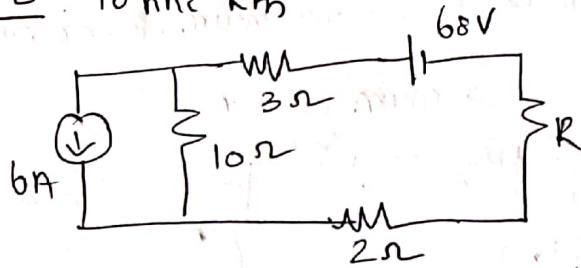 68V
3Ω
R
10Ω
6A
2Ω